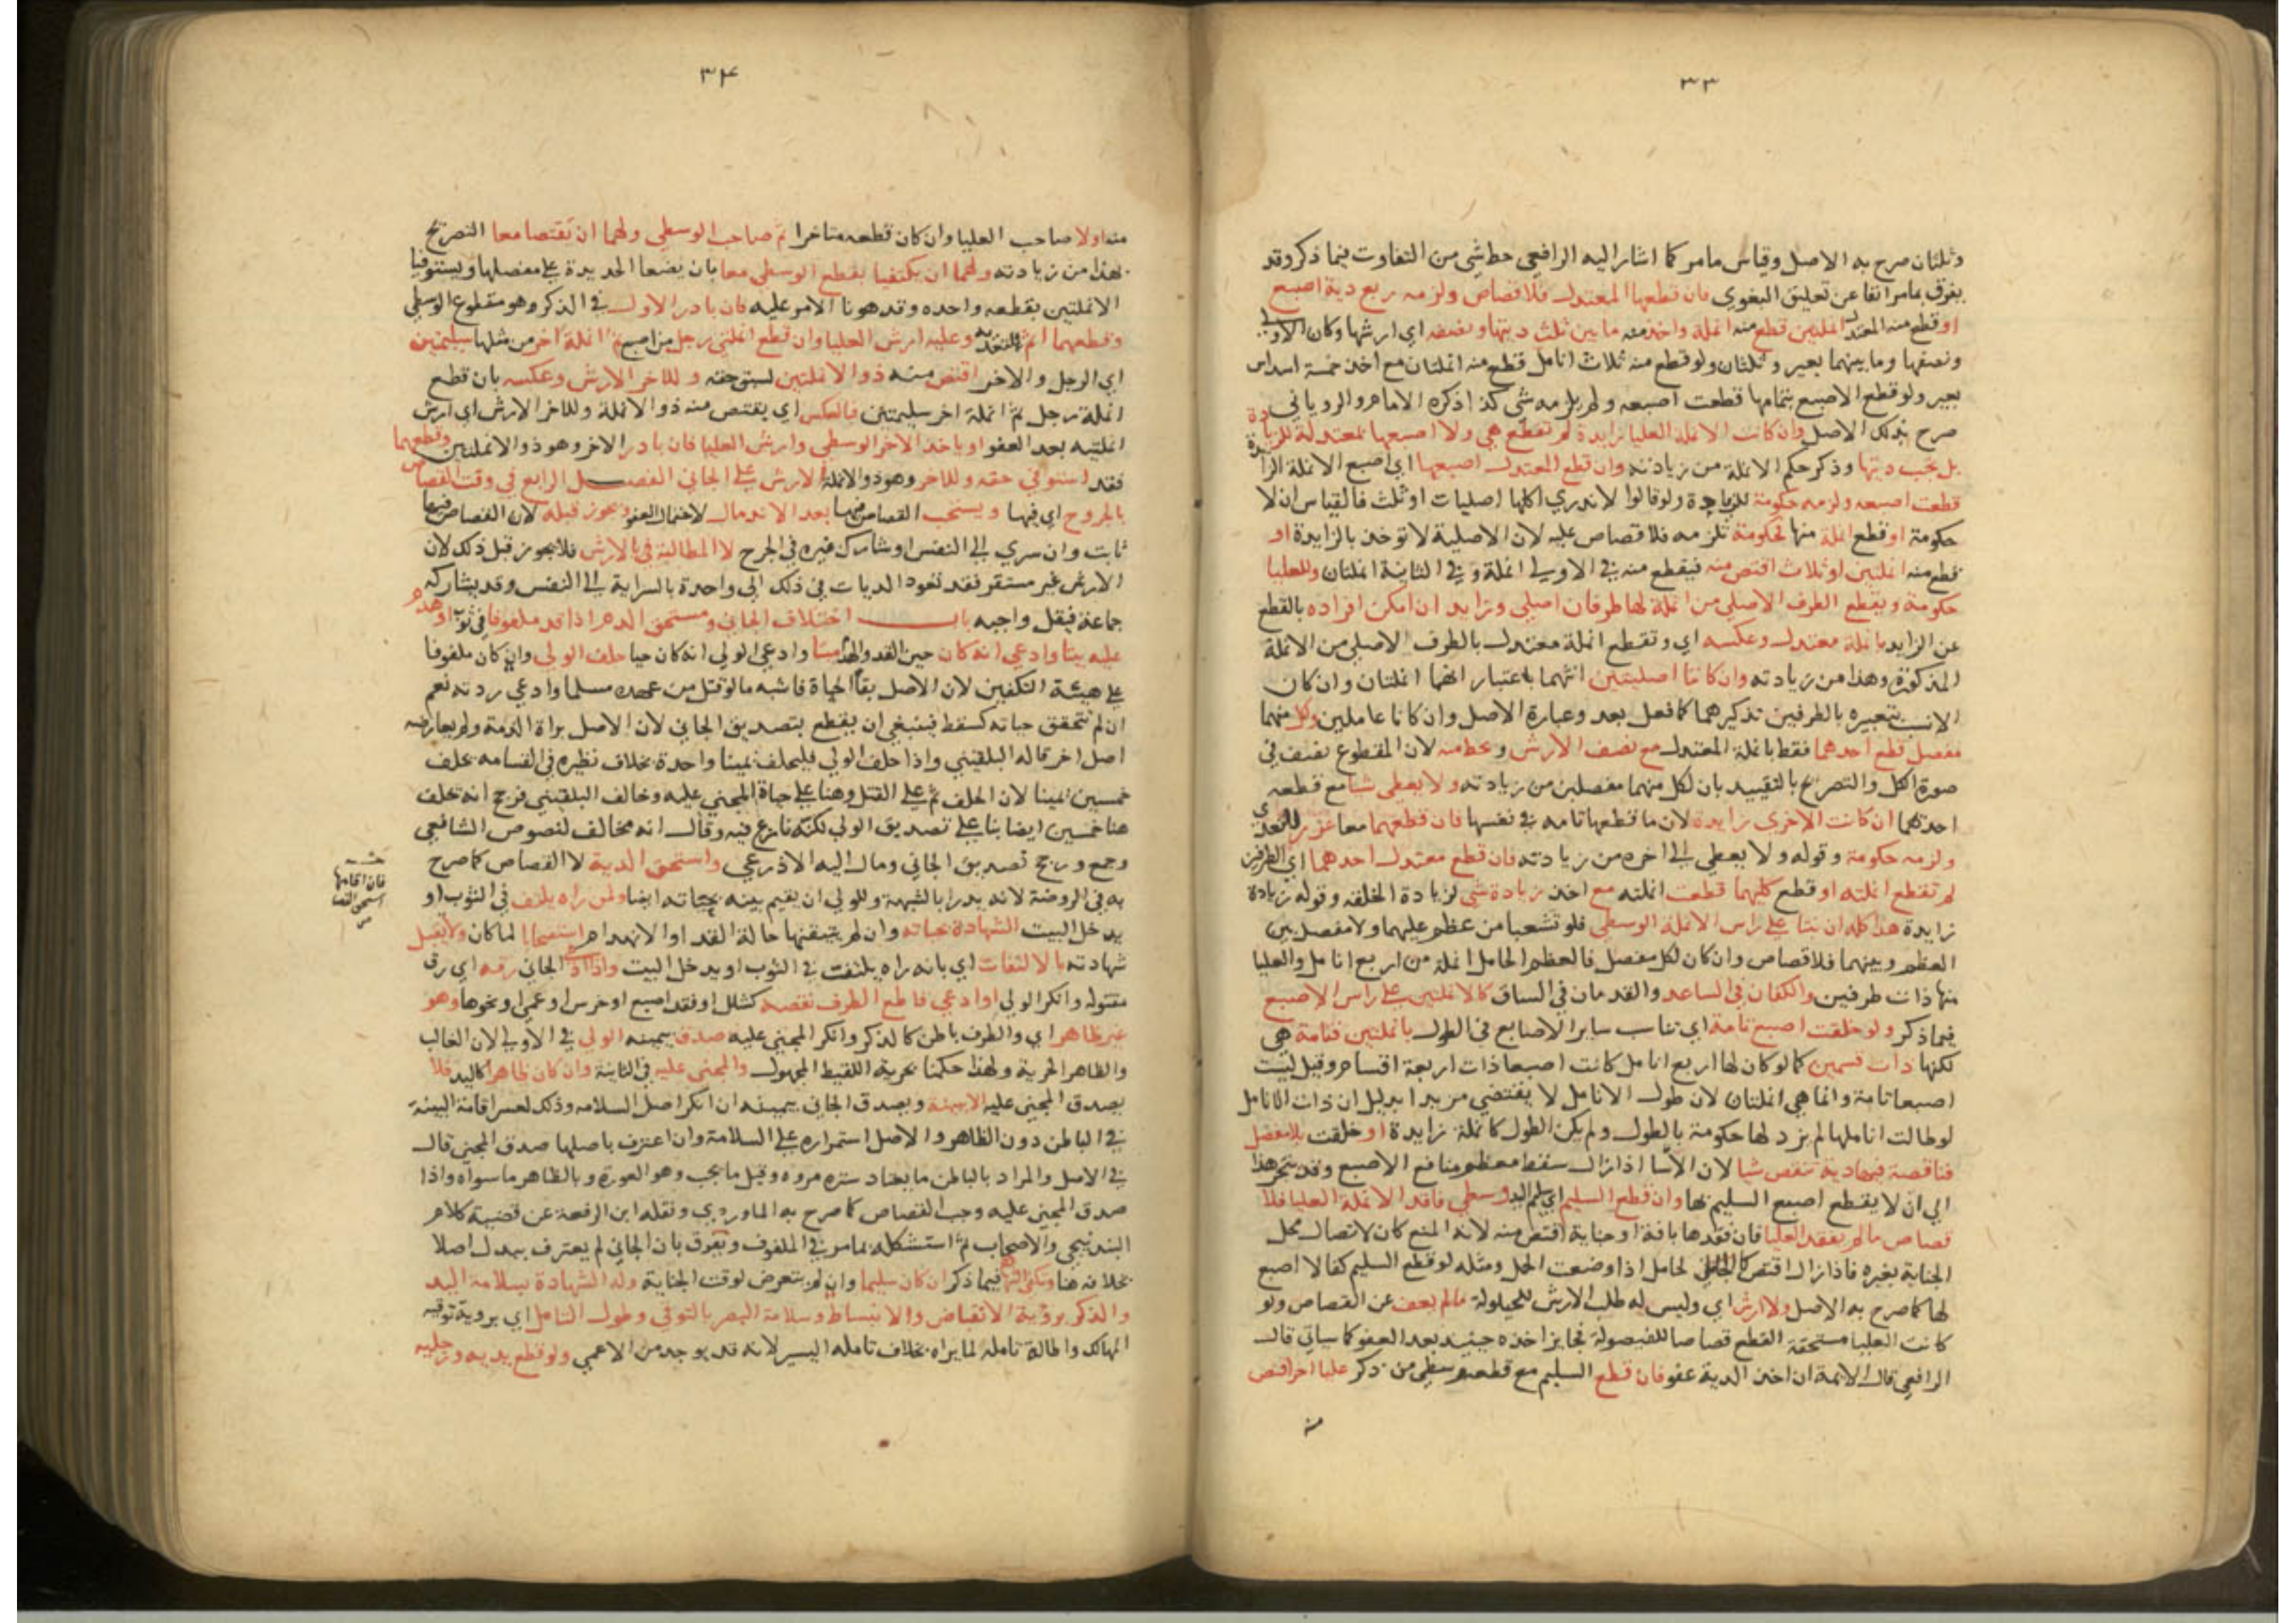 ٣٣
وثلثان صرح به الاصل وقياس مامر كما اشار اليه الرافعي حط شي من التفاوت فيما ذكر وقد
يفرق بمامر انفا عن تعليق البغوي فان قطعها المعتدل فلا قصاص ولزمه ربع دية اصبع
او قطع منه المعتدل انملتين قطع منه انملة واخذ منه ما بين ثلث ديتها ونصفه اي ارشها وكان الاولى
ونصفها وما بينهما بعير وثلثان ولو قطع منه ثلاث انامل قطع منه انملتان مع اخذ خمسة اسداس
بعير ولو قطع الاصبع بتمامها قطعت اصبعه ولم يلزمه شي كذا ذكره الامام والروياني
صرح بذلك الاصل وان كانت الانملة العليا زايدة لم تقطع هي ولا اصبعها بمعتدلة للزيادة
بل يجب ديتها وذكر حكم الانملة من زيادته وان قطع المعتدل اصبعها اي اصبع الانملة الزايدة
قطعت اصبعه ولزمه حكومة للزيادة ولو قالوا لا ندري اكلها اصليات او ثلث فالقياس ان لا
حكومة او قطع انملة منها فحكومة تلزمه فلا قصاص عليه لان الاصلية لا توخذ بالزايدة او
قطع منه انملتين او ثلاث اقتص منه فيقطع منه في الاولى انملة وفي الثانية انملتان وللعليا
حكومة ويقطع الطرف الاصلي من انملة لها طرفان اصلي وزايد ان امكن افراده بالقطع
عن الزايد بانملة معتدل وعكسه اي وتقطع انملة معتدل بالطرف الاصلي من الانملة
المذكورة وهذا من زيادته وان كانتا اصليتين اثنهما باعتبار انهما انملتان وان كان
الانسب بتعبيره بالطرفين تذكيرهما كما فعل بعد وعبارة الاصل وان كانا عاملين وكل منهما
مفصل قطع احدهما فقط بانملة المعتدل مع نصف الارش وحط منه لان المقطوع نصف في
صورة الكل والتصريح بالتقييد بان لكل منهما مفصلين من زيادته ولا يعطي شيا مع قطعه
احدهما ان كانت الاخرى زايدة لان ما قطعها تامة في نفسها فان قطعهما معا عزر للتعدي
ولزمه حكومة وقوله ولا يعطي الى اخره من زيادته فان قطع معتدل احدهما اي الطرفين
لم تقطع انملته او قطع كلهما قطعت انملته مع اخذ زيادة شي لزيادة الخلقة وقوله زيادة
زايدة هذا كله ان نبتا على راس الانملة الوسطى فلو تشعبا من عظم عليهما ولا مفصل بين
العظم وبينهما فلا قصاص وان كان لكل مفصل فالعظم الحامل انملة من اربع انامل والعليا
منها ذات طرفين والكفان في الساعد والقدمان في الساق كالانملتين على راس الاصبع
فيما ذكر ولو خلقت اصبع تامة اي تناسب ساير الاصابع في الطول بانملتين فتامة هي
لكنها ذات قسمين كما لو كان لها اربع انامل كانت اصبعا ذات اربعة اقسام وقيل ليست
اصبعا تامة وانما هي انملتان لان طول الانامل لا يقتضي مزيدا بدليل ان ذات الانامل
لو طالت اناملها لم يزد لها حكومة بالطول ولم يكن الطول كانملة زايدة او خلقت بلا مفصل
فناقصة فيها دية تنقص شيا لان الانثنا اذا زال سقط معظم منافع الاصبع وقد ينجر هذا
الى ان لا يقطع اصبع السليم بها وان قطع السليم اي سليم اليد وسطى فاقد الانملة العليا فلا
قصاص ما لم يفقد العليا فان فقدها بافة او جناية اقتص منه لانه المنع كان لاتصال محل
الجناية بغيره فاذا زال اقتص كالحامل اذا وضعت الحمل ومثله لو قطع السليم كفا لا اصبع
لها كما صرح به الاصل ولا ارش اي وليس له طلب الارش للحيلولة ما لم يعف عن القصاص ولو
كانت العليا مستحقة القطع قصاصا للفيصولة فجايز اخذه حينئذ بعد العفو كما سياتي قال
الرافعي قال الائمة ان اخذ الدية عفو فان قطع السليم مع قطعه وسطى من ذكر عليا اخر اقتص
منه
٣٤
منه اولا صاحب العليا وان كان قطعه متاخرا ثم صاحب الوسطى ولهما ان يقتصا معا التصريح
بهذا من زيادته ولهما ان يكتفيا بقطع الوسطى معا بان يضعا الحديدة على مفصلها ويستوفيا
الانملتين بقطعه واحدة وقد هونا الامر عليه فان بادر الاول في الذكر وهو مقطوع الوسطى
وقطعهما اثم لتعديه وعليه ارش العليا وان قطع انملتي رجل من اصبع ثم انملة اخر من مثلها سليمتين
اي الرجل والاخر اقتص منه ذو الانملتين لسبق حقه وللاخر الارش وعكسه بان قطع
انملة رجل ثم انملة اخر سليمتين فالعكس اي يقتص منه ذو الانملة وللاخر الارش اي ارش
انملتيه بعد العفو او ياخذ الاخر الوسطى وارش العليا فان بادر الاخر وهو ذو الانملتين وقطعهما
فقد استوفى حقه وللاخر وهو ذو الانملة الارش على الجاني الفصل الرابع في وقت القصاص
بالجروح اي فيها ويستحب القصاص فيها بعد الاندمال لاحتمال العفو ويجوز قبله لان القصاص فيها
ثابت وان سرى الى النفس او شارك غيره في الجرح لا المطالبة بالارش فلا يجوز قبل ذلك لان
الارش غير مستقر فقد تعود الديات في ذلك الى واحدة بالسراية الى النفس وقد يشاركه
جماعة فيقل واجبه باب اختلاف الجاني ومستحق الدم اذا قد ملفوفا في ثوب او هدم
عليه بيتا وادعي انه كان حين القد والهدم ميتا وادعى الولي انه كان حيا حلف الولي وان كان ملفوفا
على هيئة التكفين لان الاصل بقا الحياة فاشبه ما لو قتل من عهده مسلما وادعى ردته نعم
ان لم تتحقق حياته كسقط فينبغي ان يقطع بتصديق الجاني لان الاصل براة الذمة ولم يعارضه
اصل اخر قاله البلقيني واذا حلف الولي فليحلف يمينا واحدة بخلاف نظيره في القسامه يحلف
خمسين يمينا لان الحلف ثم على القتل وهنا على حياة المجني عليه وخالف البلقيني فرجح انه يحلف
هنا خمسين ايضا بنا على تصديق الولي لكنه نازع فيه وقال انه مخالف لنصوص الشافعي
وجمع ورجح تصديق الجاني ومال اليه الاذرعي واستحق الدية لا القصاص كما صرح
به في الروضة لانه يدرا بالشبهة وللولي ان يقيم بينه بحياته ايضا ولمن راه يلتف في الثوب او
يدخل البيت الشهادة بحياته وان لم يتيقنها حالة القد او الانهدام استصحابا لما كان ولا يقبل
شهادته بالالتفات اي بانه راه يلتف في الثوب او يدخل البيت واذا ادعى الجاني رقه اي رق
مقتوله وانكر الولي او ادعى قاطع الطرف نقصه كشلل او فقد اصبع او خرس او عمى او نحوها وهو
غير ظاهر اي والطرف باطن كالذكر وانكر المجني عليه صدق بيمينه الولي في الاولى لان الغالب
والظاهر الحرية ولهذا حكمنا بحرية اللقيط المجهول والمجني عليه في الثانية وان كان ظاهرا كاليد فلا
يصدق المجني عليه الا ببينة ويصدق الجاني بيمينه ان انكر اصل السلامه وذلك لعسر اقامة البينة
في الباطن دون الظاهر والاصل استمراره على السلامة وان اعترف باصلها صدق المجني قال
في الاصل والمراد بالباطن ما يعتاد ستره مروه وقيل ما يجب وهو العورة وبالظاهر ما سواه واذا
صدق المجني عليه وجب القصاص كما صرح به الماوردي ونقله ابن الرفعة عن قضية كلام
البندنيجي والاصحاب ثم استشكله بمامر في الملفوف ويفرق بان الجاني لم يعترف ببدل اصلا
بخلافه هنا وتكفي الشهادة فيما ذكر ان كان سليما وان لم يتعرض لوقت الجناية وله الشهادة بسلامة اليد
والذكر بروية الانقباض والانبساط وسلامة البصر بالتوقي وطول التامل اي بروية توقيه
المهالك واطالة تامله لما يراه بخلاف تامله اليسير لانه قد يوجد من الاعمى ولو قطع يديه ورجليه
فان اقامها
استحق القصاص